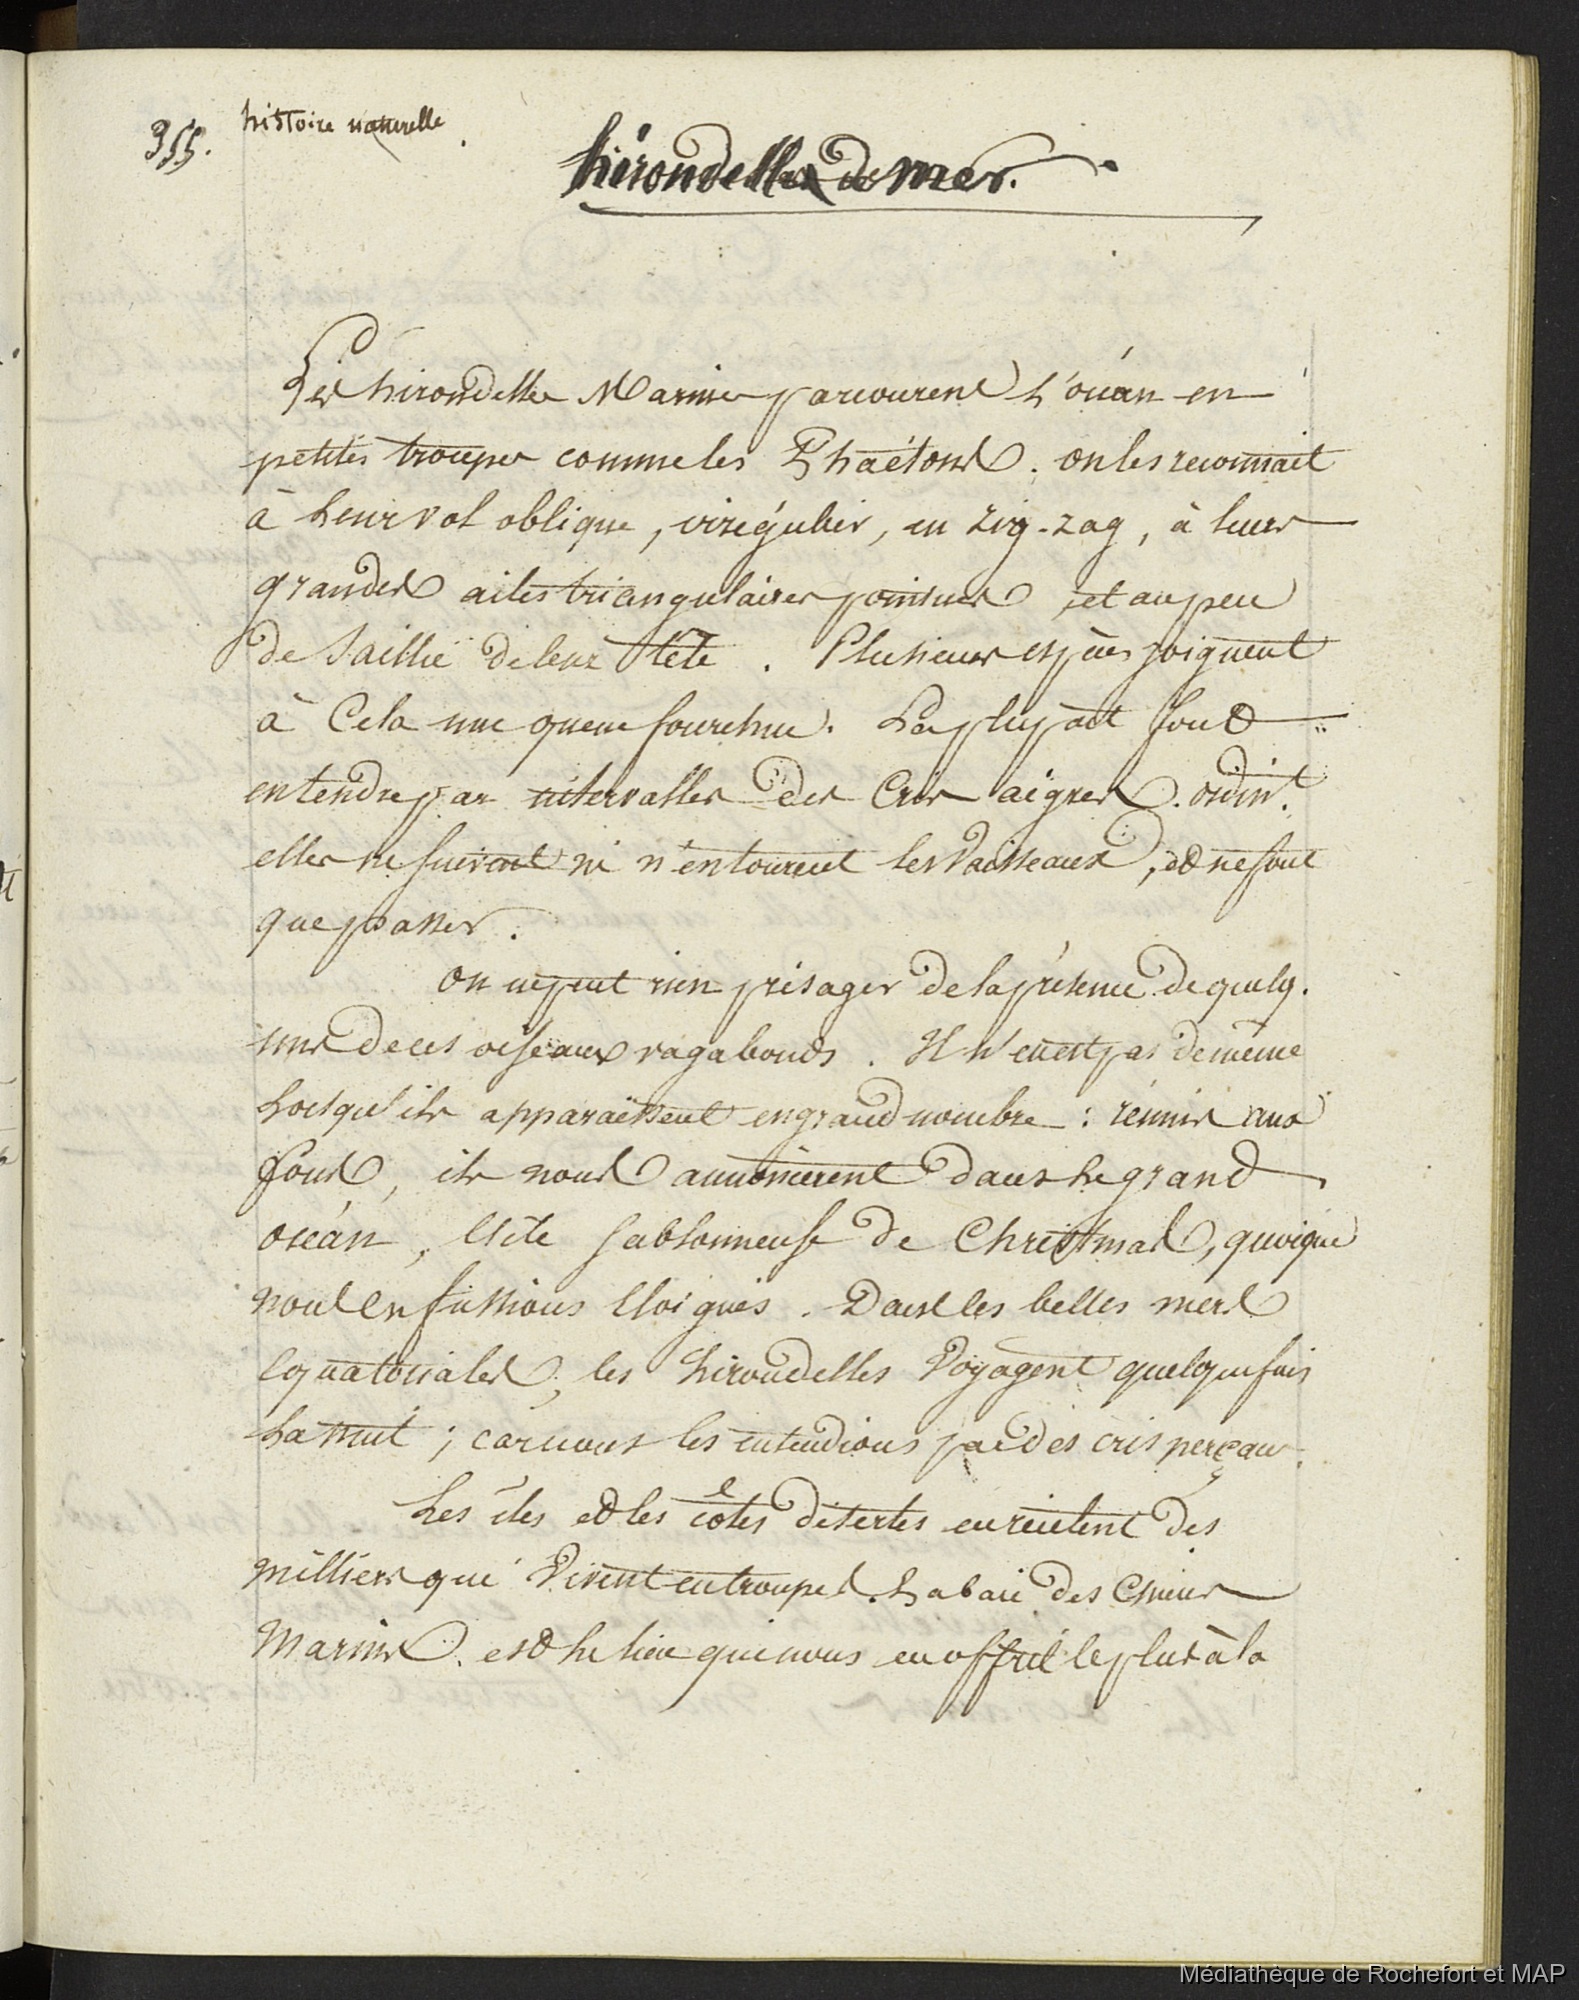 355.
histoire naturelle.
hirondelles de mer.
Les hirondelles Marines parcourent l'océan en
petites troupes comme les Phaétons. on les reconnait
à leur vol oblique, irrégulier, en zig-zag, à leurs
grandes ailes triangulaires pointues et au peu
de Saillie de leur tête. Plusieurs espèces joignent
à Cela une queue fourchue. La plupart font
entendre par intervalles des Cris aigres. ordint.
elles ne suivent ni n'entourent les Vaisseaux, et ne font
que passer.
on ne peut rien présager de la présence de quelq.
uns de ces oiseaux vagabonds. Il n'en est pas de même
Lorsqu'ils apparaissent en grand nombre : réunis aux
fous, ils nous annoncèrent dans le grand
océan, l'île sablonneuse de Christmas, quoique
nous en fussions éloignés. Dans les belles mers
équatoriales, les hirondelles Voyagent quelquefois
la nuit ; car nous les entendions par des cris perçans.
Les îles et les côtes désertes en recèlent des
milliers qui Vivent en troupes. La baie des Chiens
Marins est le lieu qui nous en offrit le plus à la
Médiathèque de Rochefort et MAP